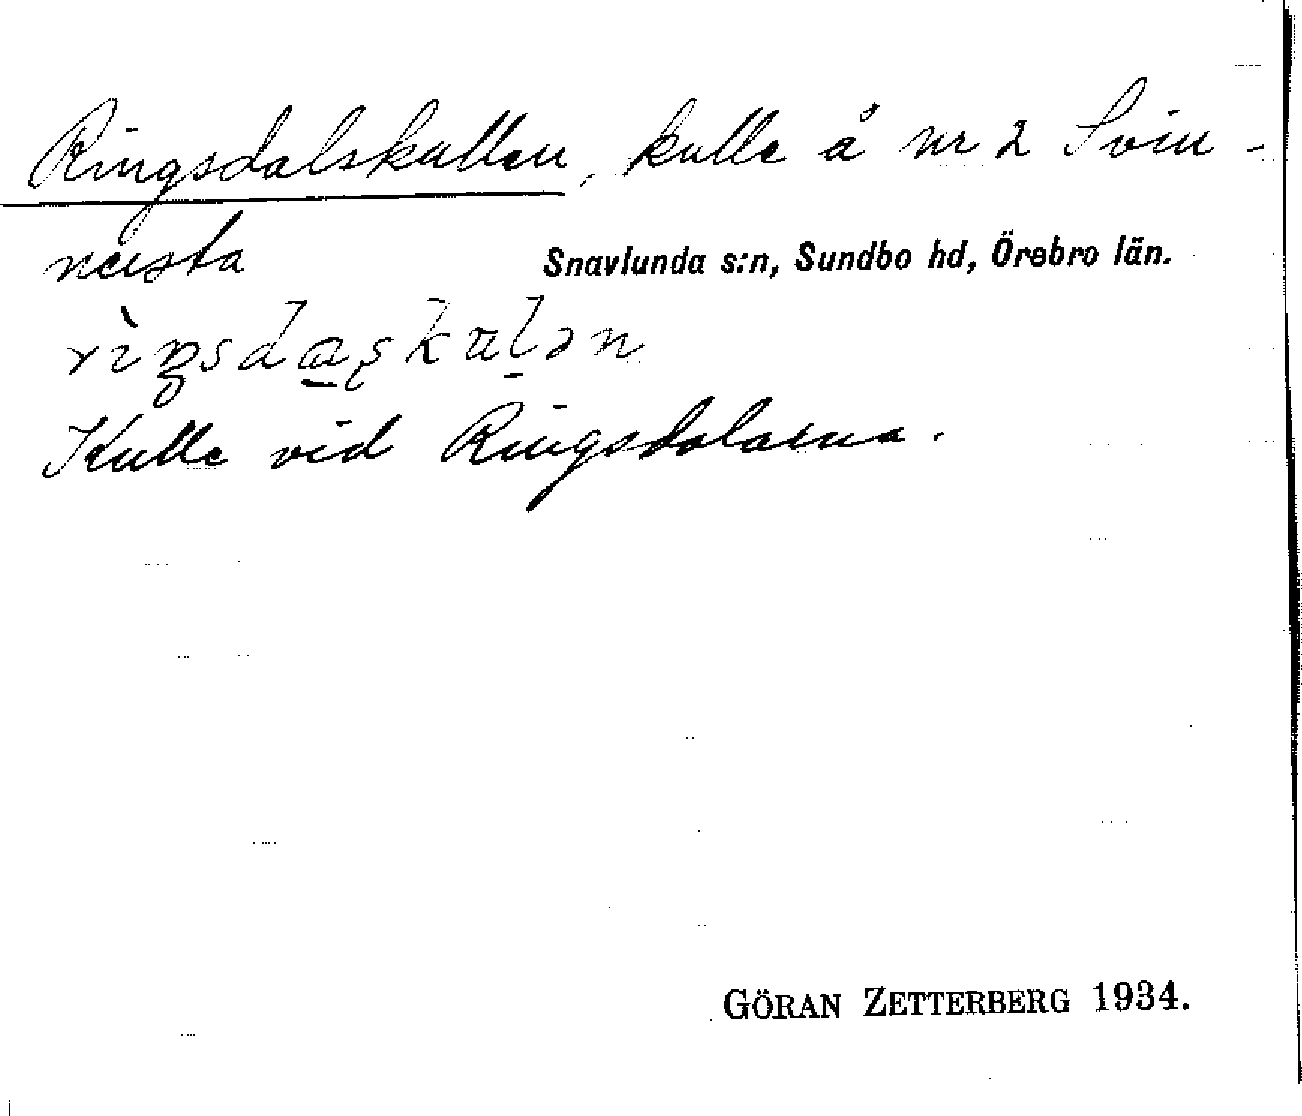 Ringsdalskullen, kulle å nr 2 Svin-
nersta
Snavlunda s:n, Sundbo hd, Örebro län.
Kulle vid Ringsdalarna.
GÖRAN ZETTERBERG 1934.